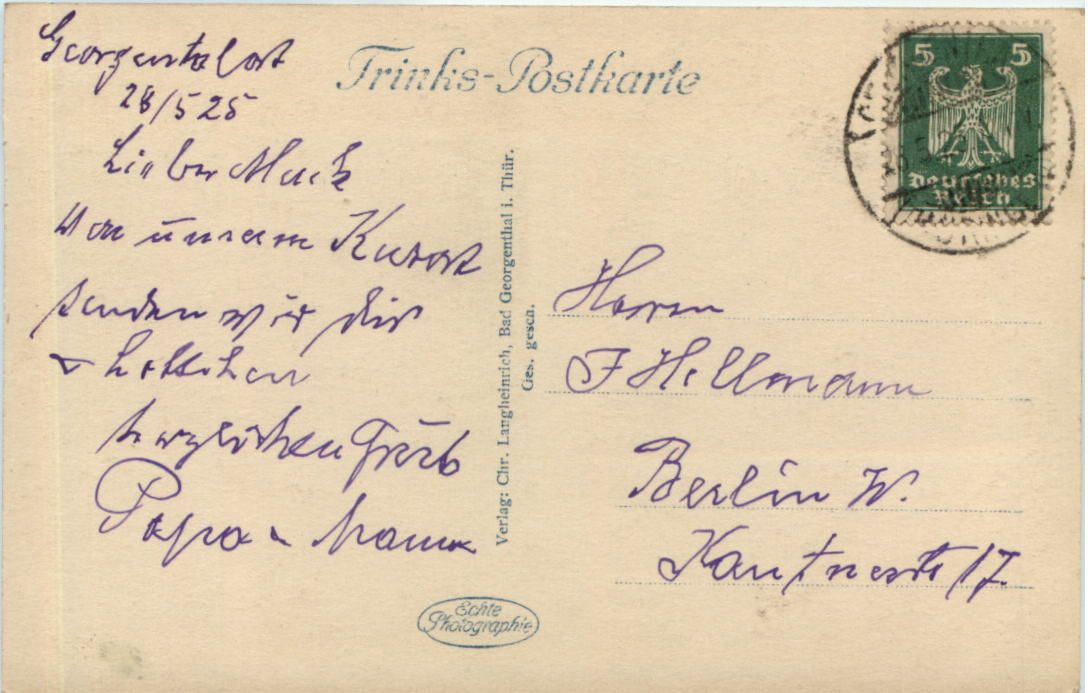 Georgental
28/5 25
Lieber
Von unserem Kurort
senden wir dir
u Lottchen
herzlichen Gruß
Papa u Mama
Trinks-Postkarte
Verlag: Chr. Langheinrich, Bad Georgenthal i. Thür.
Ges. gesch.
5 5
Deutsches
Reich
Herrn
F Hellmann
Berlin W.
17.
Echte
Photographie